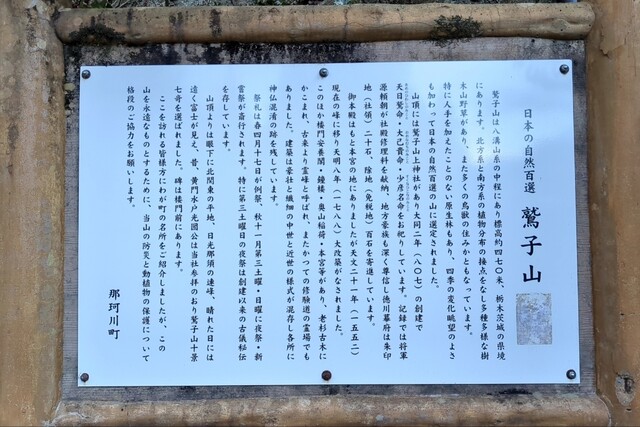 日本の自然百選 鷲子山
鷲子山は八溝山系の中程にあり標高約四七〇米、栃木茨城の県境
にあります。北方系と南方系の植物分布の接点をなし多種多様な樹
木山野草があり、また多くの鳥獣の住みかともなっています。
特に人手を加えたことのない原生林もあり、四季の変化眺望のよさ
も加わって日本の自然百選の山に選定されました。
山頂には鷲子山上神社があり大同二年(八〇七)の創建で
天日鷲命・大己貴命・少彦名命をお祀りしています。記録では将軍
源頼朝が社殿修理料を献納、地方豪族も深く尊信し徳川幕府は朱印
地(社領)二十石、除地(免税地)百石を寄進しています。
御本殿はもと本宮の地にありましたが天文二十一年(一五五二)
現在の峰に移り天明八年(一七八八)大改築がなされました。
このほか楼門安養閣・鐘楼・奥山稲荷・本宮等があり、老杉古木に
かこまれ、古来より霊峰と呼ばれ、またかつての修験道の霊場でも
ありました。建築は豪壮と繊細の中世と近世の様式が混存し各所に
神仏混淆の跡を残しています。
祭礼は春四月十七日が例祭、秋十一月第三土曜・日曜に夜祭・新
嘗祭が斎行されます。特に第三土曜日の夜祭は創建以来の古儀秘伝
を存しています。
山頂よりは眼下に北関東の平地、日光那須の連峰、晴れた日には
遠く富士が見え、昔、黄門水戸光圀公は当社参拝のおり鷲子山十景
七奇を選ばれました。碑は楼門前にあります。
ここを訪れる皆様方にわが町の名所をご紹介しましたが、この
山を永遠なものとするために、当山の防災と動植物の保護について
格段のご協力をお願いします。
那珂川町